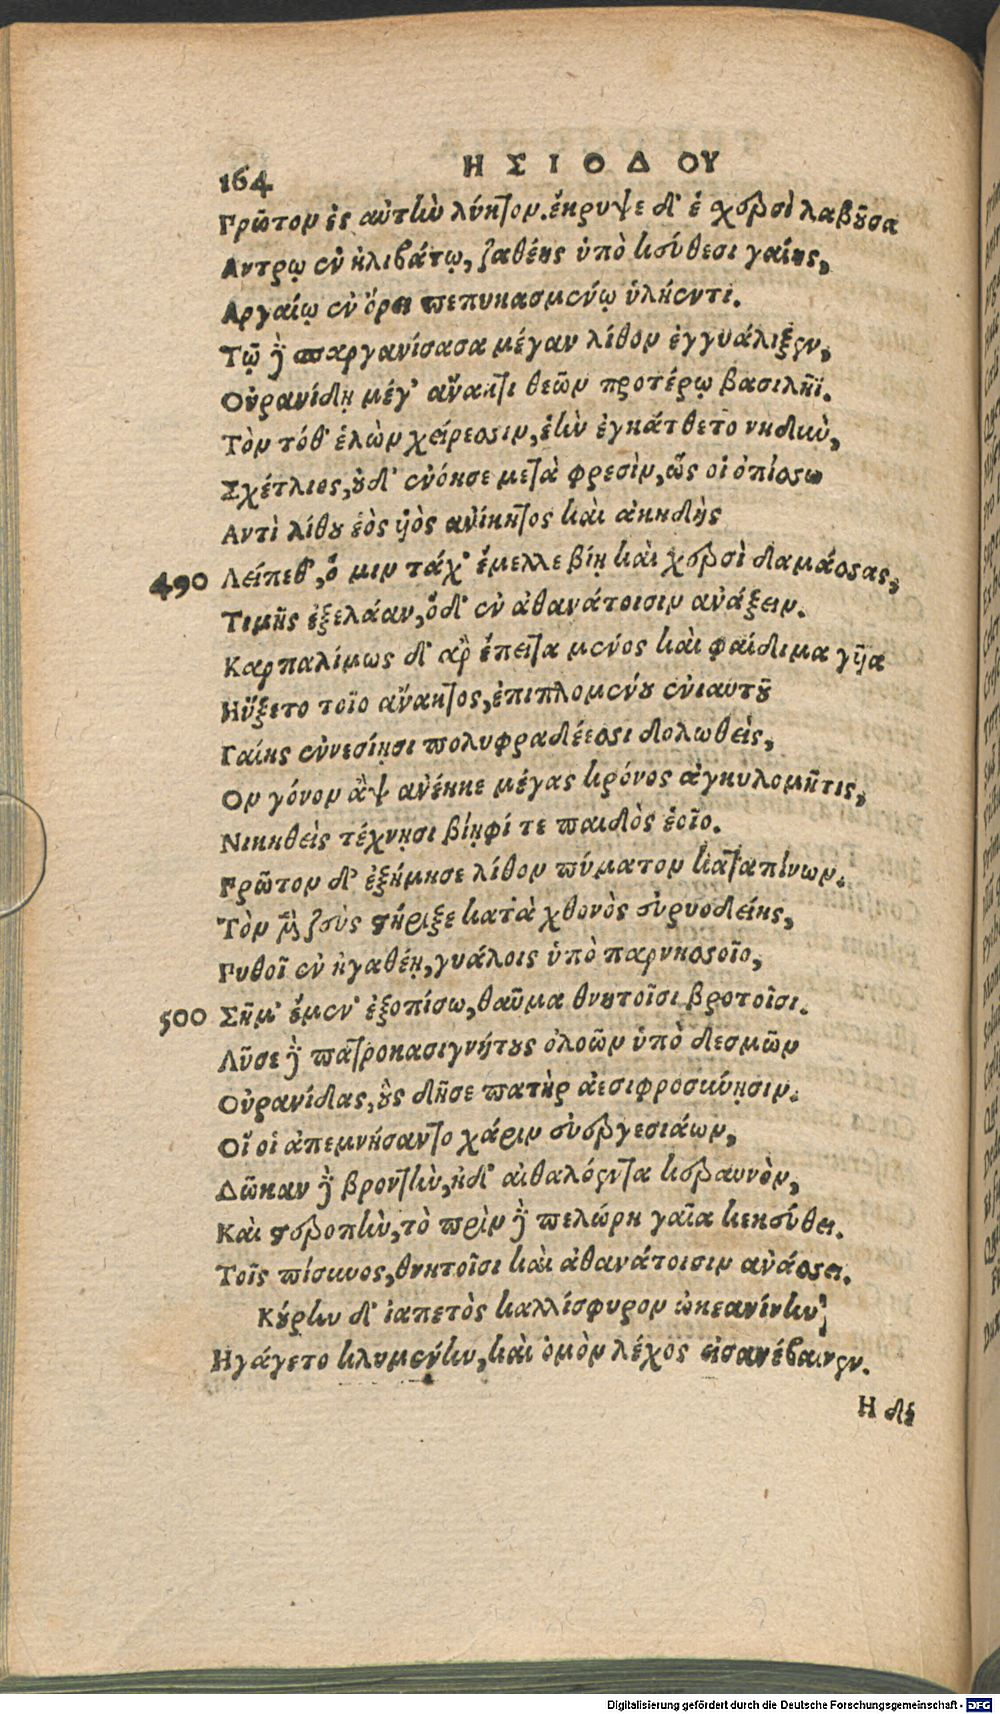 164
ΗΣΙΟΔΟΥ
Πρῶτον ἐς αὐτὴν λύκτον. ἔκρυψε δ' ἑ χερσὶ λαβοῦσα
Αντρῳ ἐν ἠλιβάτῳ, ζαθέης ὑπὸ κεύθεσι γαίης,
Αργαίῳ ἐν ὄρει πεπυκασμένῳ ὑλήεντι.
Τῷ δὲ σπαργανίσασα μέγαν λίθον ἐγγυάλιξεν,
Οὐρανίδῃ μέγ' ἄνακτι θεῶν προτέρῳ βασιλῆϊ.
Τὸν τόθ' ἑλὼν χείρεσσιν, ἑὴν ἐγκάτθετο νηδὺν,
Σχέτλιος, οὐδ' ἐνόησε μετὰ φρεσὶν, ὥς οἱ ὀπίσσω
Αντὶ λίθου ἑὸς υἱὸς ἀνίκητος καὶ ἀκηδὴς
490 Λείπεθ', ὅ μιν τάχ' ἔμελλε βίῃ καὶ χερσὶ δαμάσσας,
Τιμῆς ἐξελάαν, ὅδ' ἐν ἀθανάτοισιν ἀνάξειν.
Καρπαλίμως δ' ἄρ ἔπειτα μένος καὶ φαίδιμα γυῖα
Ηὔξετο τοῖο ἄνακτος, ἐπιπλομένου ἐνιαυτοῦ
Γαίης ἐννεσίῃσι πολυφραδέεσσι δολωθεὶς,
Ον γόνον ἂψ ἀνέηκε μέγας κρόνος ἀγκυλομῆτις,
Νικηθεὶς τέχνῃσι βίῃφί τε παιδὸς ἑοῖο.
Πρῶτον δ' ἐξήμησε λίθον πύματον καταπίνων.
Τὸν μὲν ζεὺς στήριξε κατὰ χθονὸς εὐρυοδείης,
Πυθοῖ ἐν ἠγαθέῃ, γυάλοις ὑπὸ παρνησσοῖο,
500 Σῆμ' ἔμεν' ἐξοπίσω, θαῦμα θνητοῖσι βροτοῖσι.
Λῦσε δὲ πατροκασιγνήτους ὀλοῶν ὑπὸ δεσμῶν
Οὐρανίδας, οὓς δῆσε πατὴρ ἀεσιφροσύνῃσιν.
Οἵ οἱ ἀπεμνήσαντο χάριν εὐεργεσιάων,
Δῶκαν δὲ βροντὴν, ἠδ' αἰθαλόεντα κεραυνὸν,
Καὶ στεροπὴν, τὸ πρὶν δὲ πελώρη γαῖα κεκεύθει.
Τοῖς πίσυνος, θνητοῖσι καὶ ἀθανάτοισιν ἀνάσσει.
Κούρην δ' ἰαπετὸς καλλίσφυρον ὠκεανίνην
Ηγάγετο κλυμένην, καὶ ὁμὸν λέχος εἰσανέβαινεν.
Η δέ
Digitalisierung gefördert durch die Deutsche Forschungsgemeinschaft - DFG